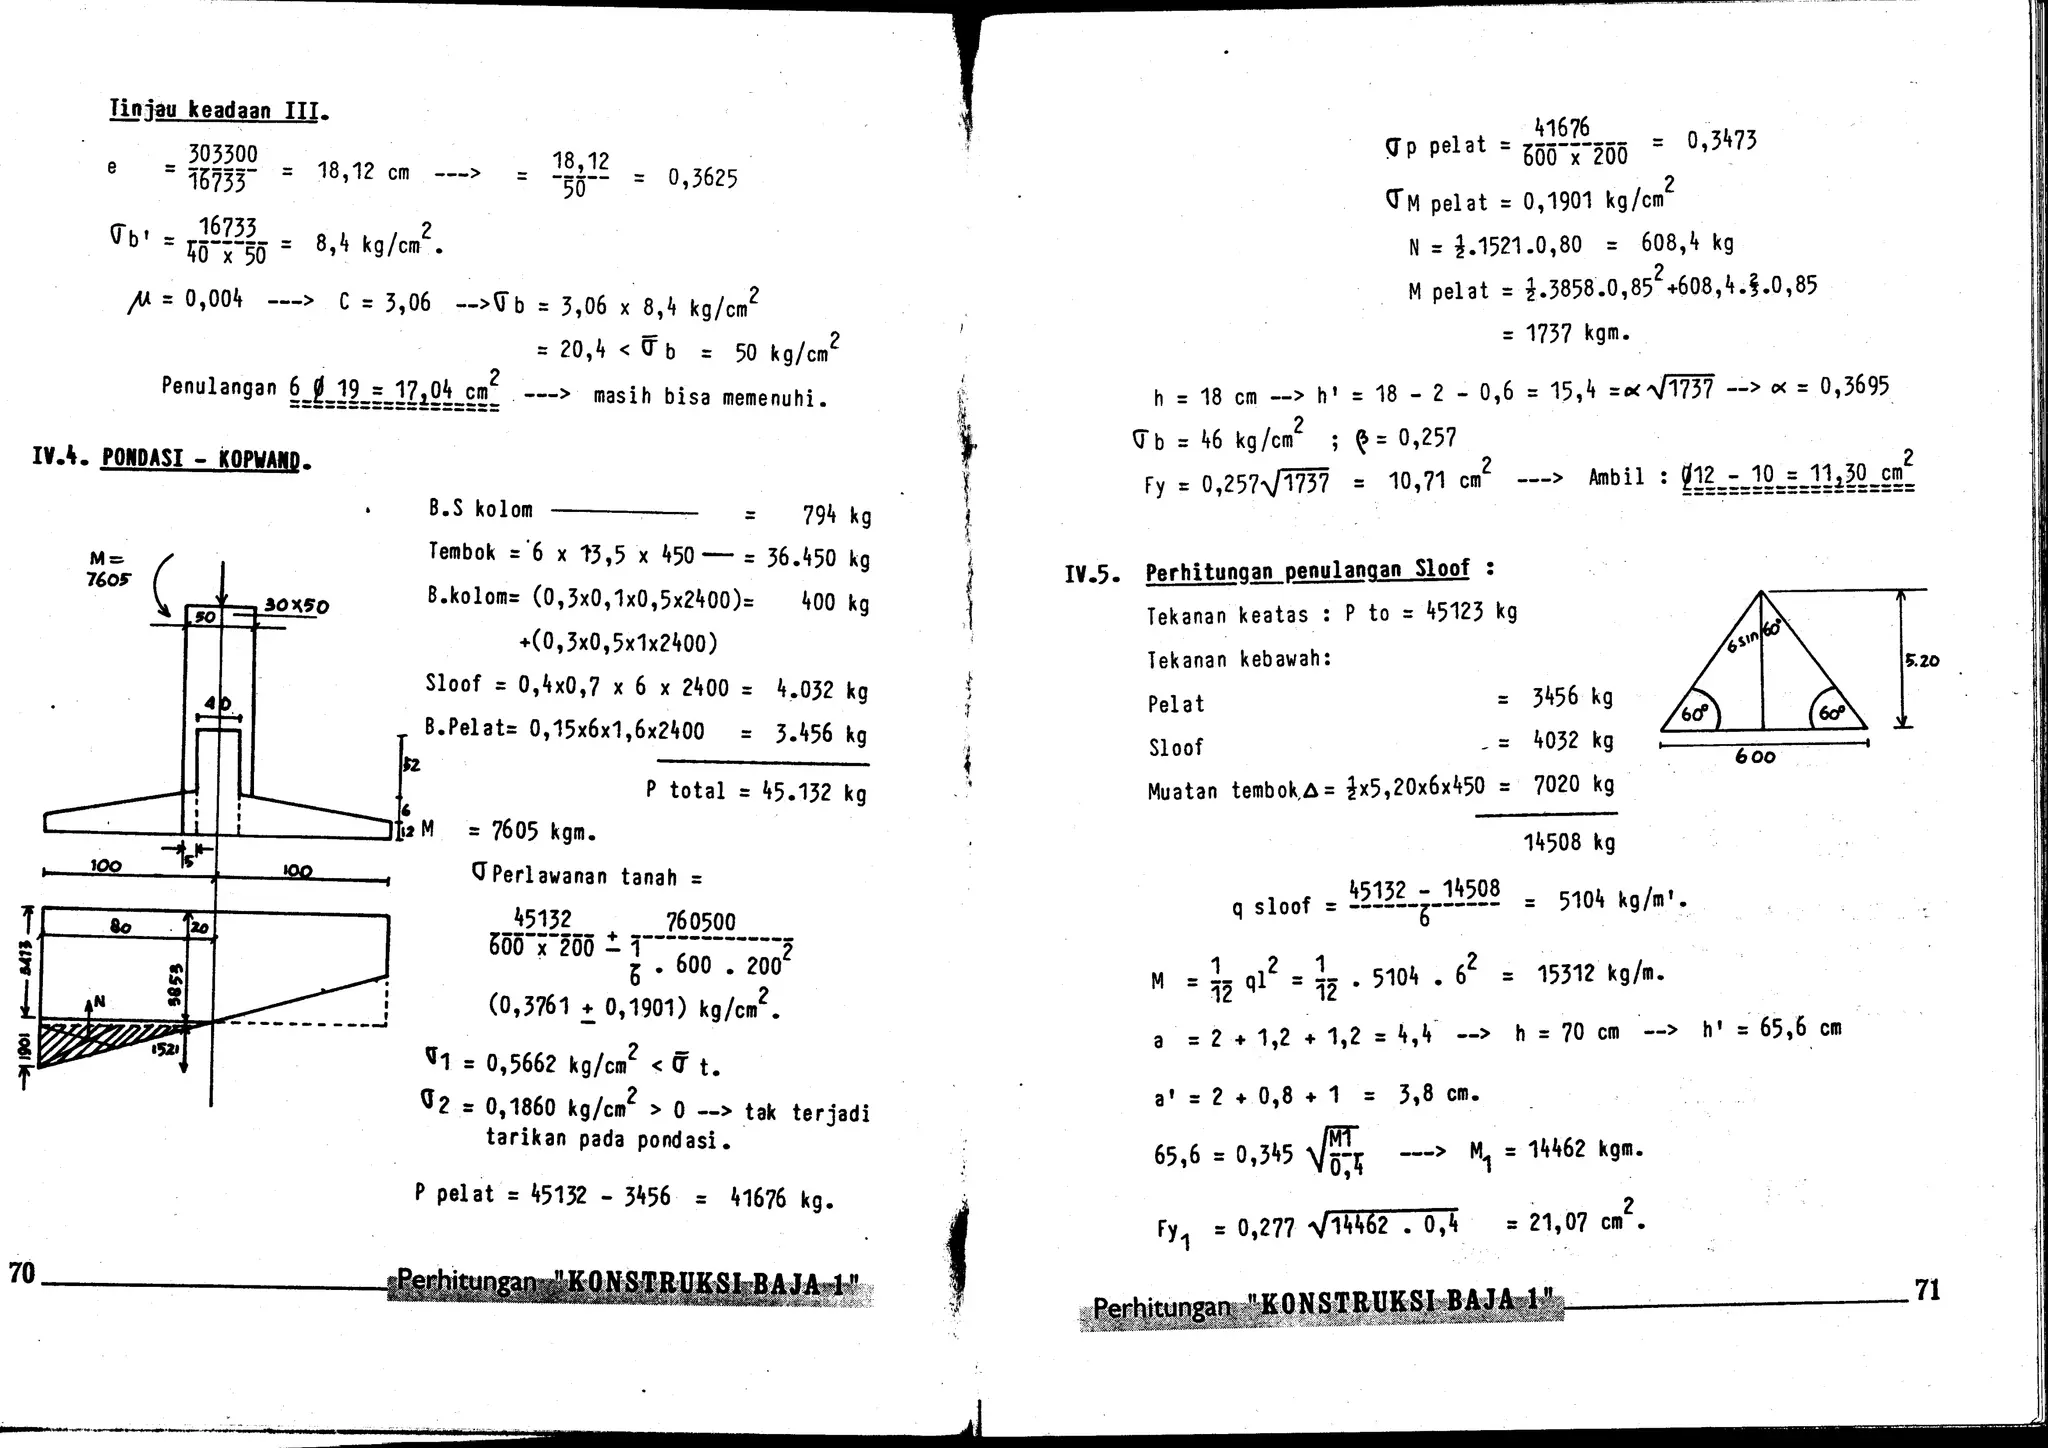 Tinjau keadaan III.
e = 303300 / 16733 = 18,12 cm ---> = 18,12 / 50 = 0,3625
σb' = 16733 / 40 x 50 = 8,4 kg/cm².
µ = 0,004 ---> C = 3,06 -->σb = 3,06 x 8,4 kg/cm²
= 20,4 < σ̅b = 50 kg/cm²
Penulangan 6 ∅ 19 = 17,04 cm² ---> masih bisa memenuhi.
IV.4. PONDASI - KOPWAND.
B.S kolom ———— = 794 kg
Tembok = 6 x 13,5 x 450 — = 36.450 kg
B.kolom= (0,3x0,1x0,5x2400)= 400 kg
+(0,3x0,5x1x2400)
Sloof = 0,4x0,7 x 6 x 2400 = 4.032 kg
B.Pelat= 0,15x6x1,6x2400 = 3.456 kg
P total = 45.132 kg
M = 7605 kgm.
σ Perlawanan tanah =
45132 / 600 x 200 ± 760500 / 1/6 . 600 . 200²
(0,3761 ± 0,1901) kg/cm².
σ1 = 0,5662 kg/cm² < σ̅ t.
σ2 = 0,1860 kg/cm² > 0 --> tak terjadi
tarikan pada pondasi.
P pelat = 45132 - 3456 = 41676 kg.
M =
7605
30X50
50
40
52
6
12
5
100
100
80
20
3473
3853
N
1901
1521
70
Perhitungan "KONSTRUKSI BAJA 1"
σp pelat = 41676 / 600 x 200 = 0,3473
σM pelat = 0,1901 kg/cm²
N = ½.1521.0,80 = 608,4 kg
M pelat = ½.3858.0,85²+608,4.⅔.0,85
= 1737 kgm.
h = 18 cm --> h' = 18 - 2 - 0,6 = 15,4 =α √1737 --> α = 0,3695
σb = 46 kg/cm² ; β = 0,257
Fy = 0,257√1737 = 10,71 cm² ---> Ambil : ∅12 - 10 = 11,30 cm²
IV.5. Perhitungan penulangan Sloof :
Tekanan keatas : P to = 45123 kg
Tekanan kebawah:
Pelat = 3456 kg
Sloof = 4032 kg
Muatan tembok,Δ= ½x5,20x6x450 = 7020 kg
14508 kg
6 sin 60°
60°
60°
5.20
600
q sloof = 45132 - 14508 / 6 = 5104 kg/m'.
M = 1/12 ql² = 1/12 . 5104 . 6² = 15312 kg/m.
a = 2 + 1,2 + 1,2 = 4,4 --> h = 70 cm --> h' = 65,6 cm
a' = 2 + 0,8 + 1 = 3,8 cm.
65,6 = 0,345 √M1 / 0,4 ---> M₁ = 14462 kgm.
Fy₁ = 0,277 √14462 . 0,4 = 21,07 cm².
Perhitungan "KONSTRUKSI BAJA 1"
71